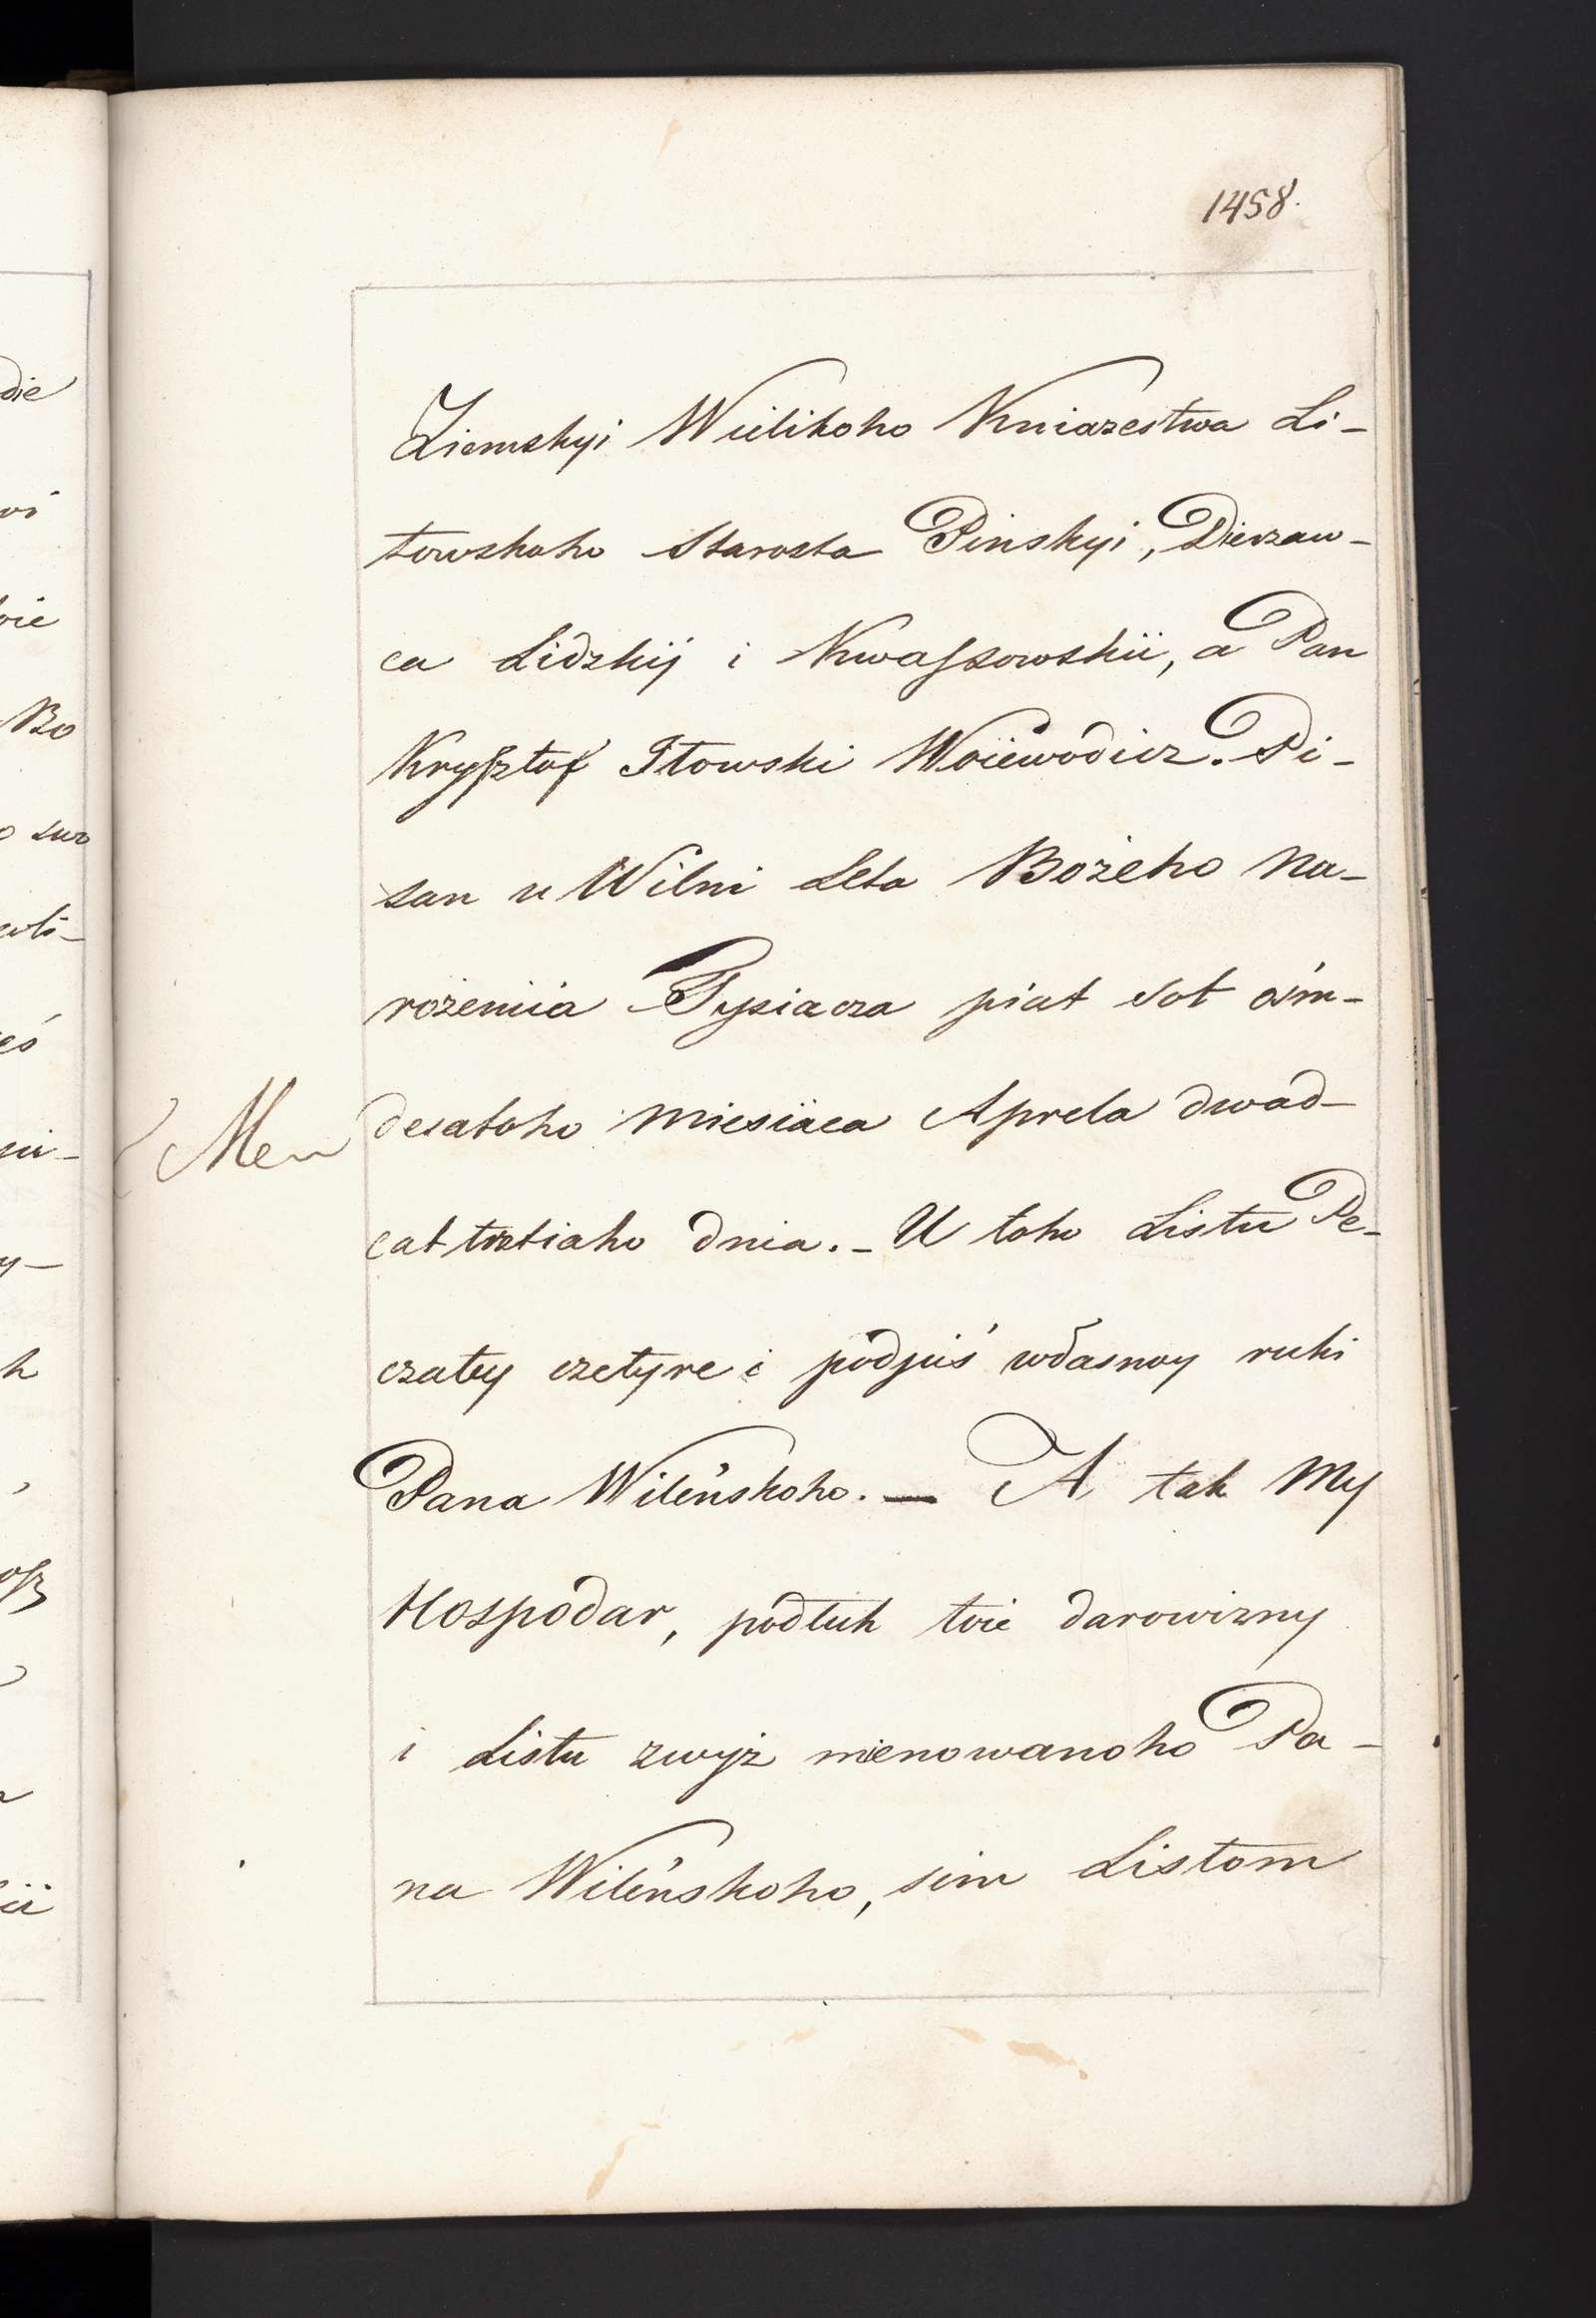 1458.
Ziemskyi Wielikoho Kniazestwa Li-
towskoho Starosta Pinskyi, Dierzaw-
ca Lidzkij i Kwaszowskii, a Pan
Krysztof Itowski Woiewodicz. Pi-
san u Wilni Leta Bożeho Na-
rożeniia Tysiacza piat sot ośm-
desatoho Miesiaca Aprela dwad-
cat tretiaho dnia. - U toho Listu Pe-
czaty czetyre i podpiś własnoy ruki
Pana Wileńskoho. — A tak My
Hospodar, podłuh toie darowizny
i Listu zwyż mienowanoho Pa-
na Wileńskoho, sim Listom